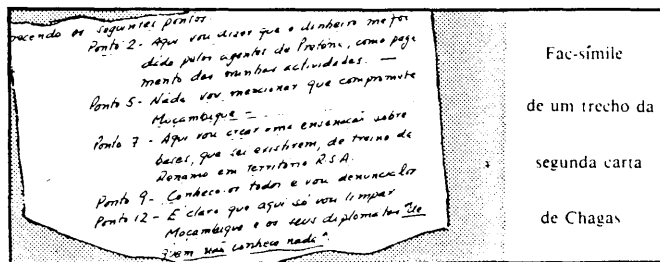 recendo os seguintes pontos
Ponto 2 - Aqui vou dizer que o dinheiro me foi
dado pelos agentes de Pretória, como paga
mento das minhas actividades. —
Ponto 5 - Nada vou mencionar que comprometa
Moçambique —
Ponto 7 - Aqui vou criar uma sobre
bases, que sei existirem, de treino da
Renamo em Território R.S.A.
Ponto 9 - Conheço-os todos e vou denunciá-los
Ponto 12 - E claro que aqui só vou limpar
Moçambique e os seus diplomatas "de
quem não conheço nada".
Fac-símile
de um trecho da
segunda carta
de Chagas